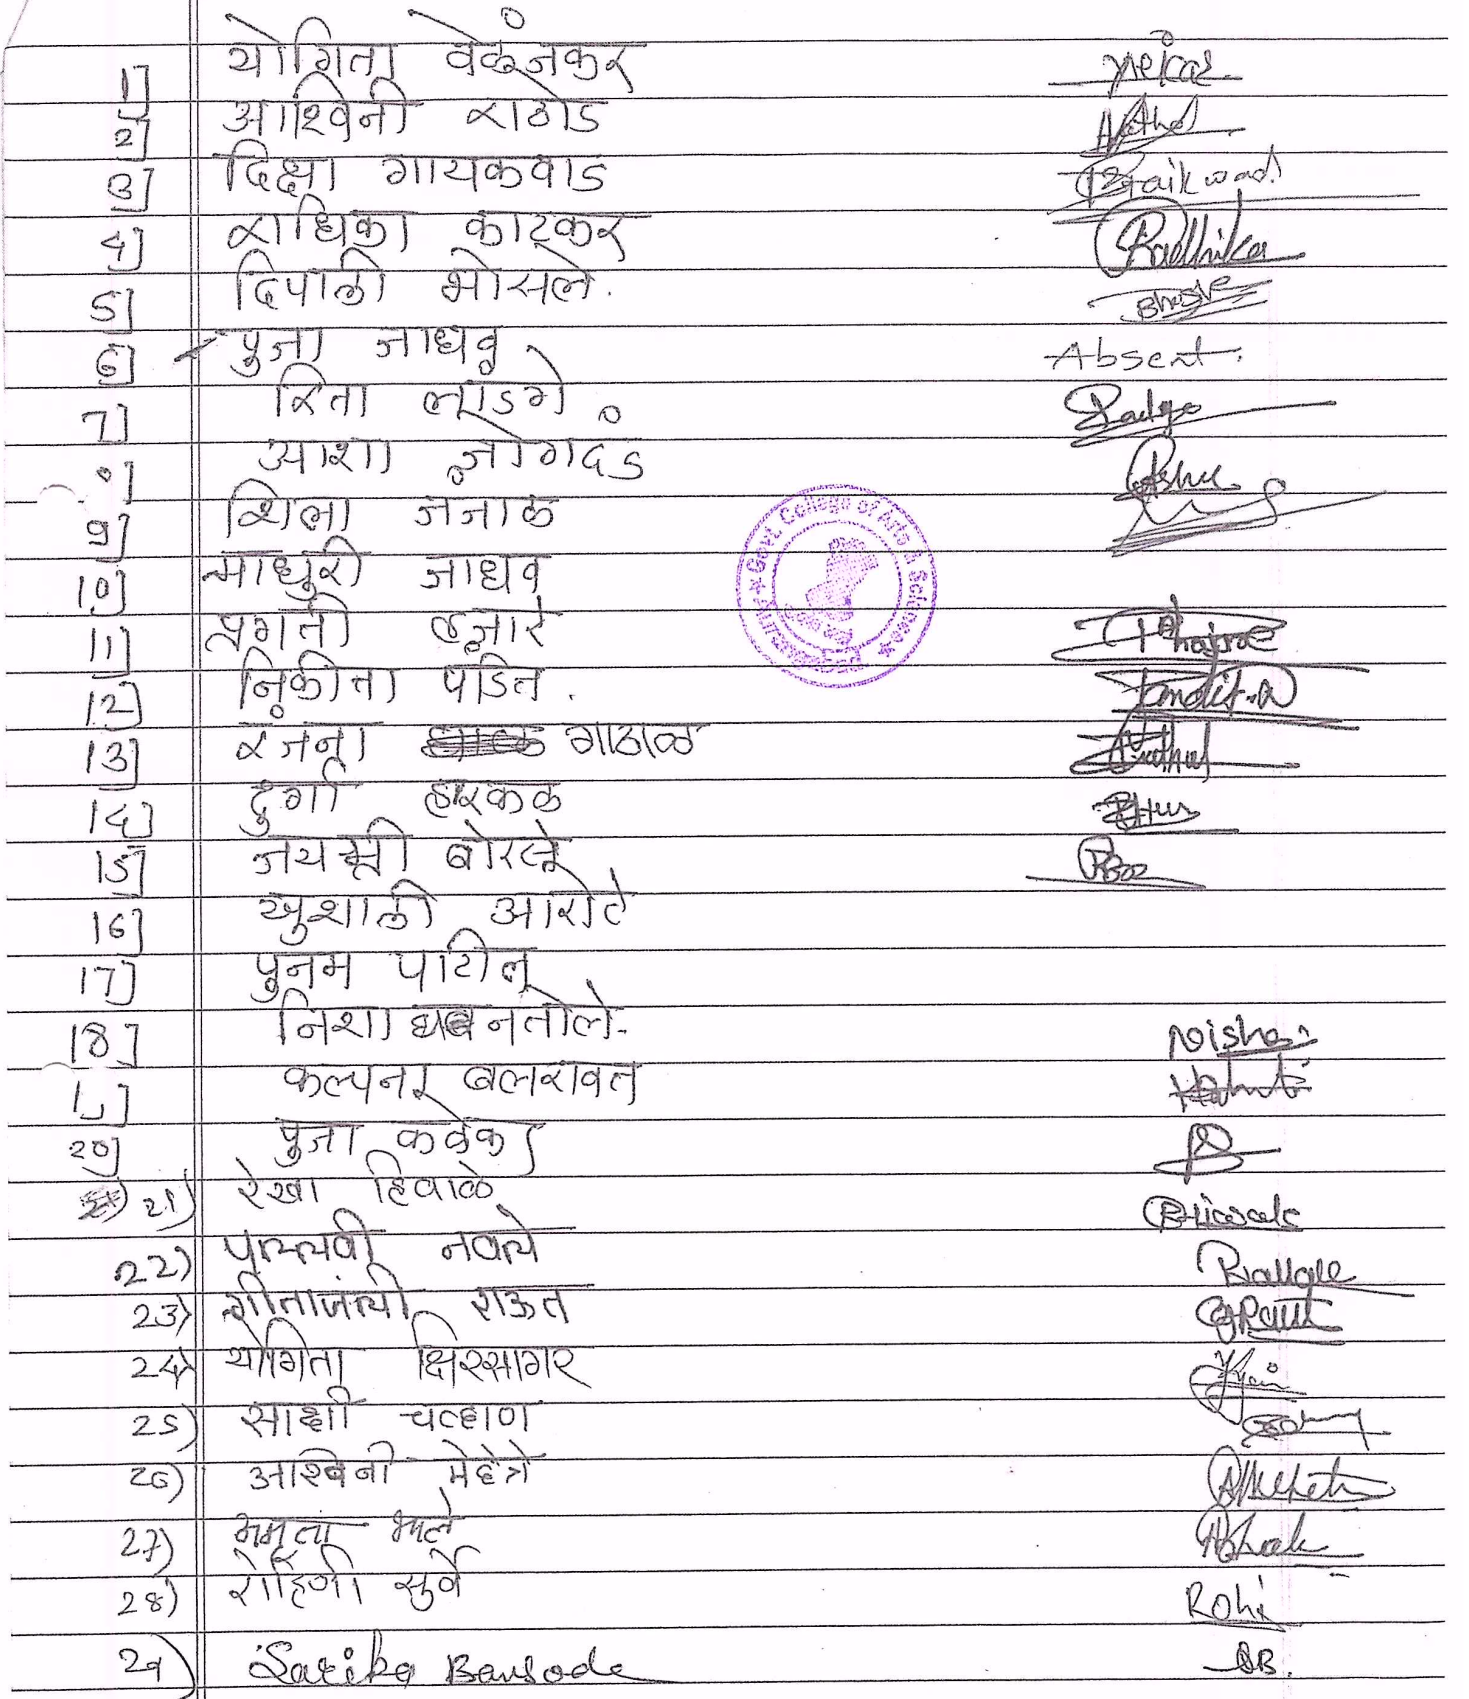 1] योगिता वेळंजकर
2] आश्विनी राठोड Rathod
3] दिक्षा गायकवाड Gaikwad
4] राधिका काटकर Radhika
5] दिपाली भोसले. Bhosle
6] पुजा जाधव Absent.
7] रिता लांडगे Ladge
आशा जोगदंड Asha
9] शिला जंजाळ
10] माधुरी जाधव
11] प्रगती हजारे Phajare
12] निकीता पंडित. Pandit.N
13] रंजना गाठाळ
14] दुर्गा हारकळ
15] जयश्री बोरले
16] खुशाली आरोटे
17] पुनम पाटील
18] निशा घनतोले. Nisha
कल्पना बलरावत
20] पुजा कवेकर
21) रेखा हिवाळे RHiwale
22) पल्लवी नवले
23) गीतांजली राऊत GRaut
24) योगिता क्षिरसागर
25) साक्षी चव्हाण
26) आश्विनी मेहेत्रे AMehetre
27) ममता भाले
28) रोहिणी सुर्वे Rohi
29) Sarika Bansode SB.
Govt. College of Arts & Science